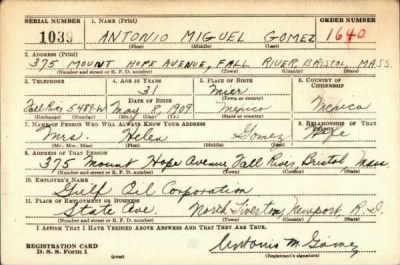 SERIAL NUMBER 1. NAME (Print) ORDER NUMBER
1039 ANTONIO MIGUEL GOMEZ 1640
(First) (Middle) (Last)
2. ADDRESS (Print)
375 MOUNT HOPE AVENUE, FALL RIVER, BRISTOL, MASS.
(Number and street or R. F. D. number) (Town) (County) (State)
3. TELEPHONE 4. AGE IN YEARS 5. PLACE OF BIRTH 6. COUNTRY OF CITIZENSHIP
31 Mier
DATE OF BIRTH (Town or county)
Fall Riv 5489-W May 8 1909 Mexico Mexico
(Exchange) (Number) (Mo.) (Day) (Yr.) (State or country)
7. NAME OF PERSON WHO WILL ALWAYS KNOW YOUR ADDRESS 8. RELATIONSHIP OF THAT PERSON
Mrs. Helen Gomez Wife
(Mr., Mrs., Miss) (First) (Middle) (Last)
9. ADDRESS OF THAT PERSON
375 Mount Hope Avenue Fall River Bristol Mass.
(Number and street or R. F. D. number) (Town) (County) (State)
10. EMPLOYER'S NAME
Gulf Oil Corporation
11. PLACE OF EMPLOYMENT OR BUSINESS
State Ave. North Tiverton Newport R.I.
(Number and street or R. F. D. number) (Town) (County) (State)
I AFFIRM THAT I HAVE VERIFIED ABOVE ANSWERS AND THAT THEY ARE TRUE.
REGISTRATION CARD
D. S. S. Form 1 Antonio M. Gomez
(Registrant's signature)